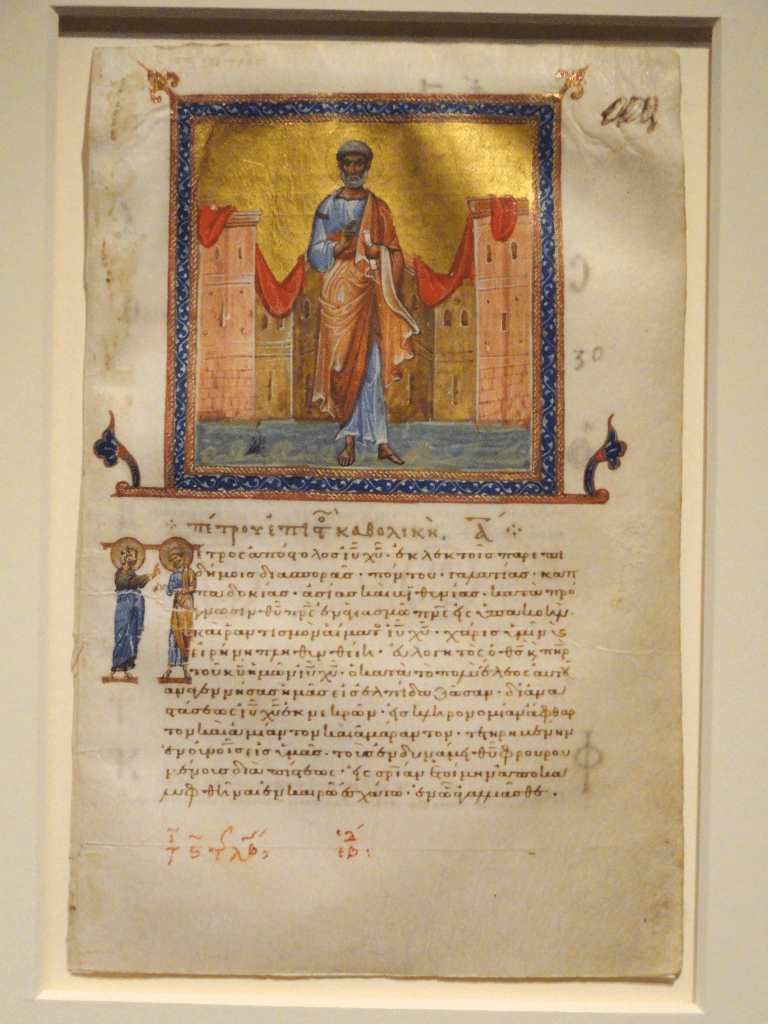 πέτρου ἐπιστολὴ καθολικὴ. Α
Πέτρος ἀπόστολος ἰυ χυ · ἐκλεκτοῖς παρεπι
δήμοις διασπορᾶς · πόντου · γαλατίας · καπ
παδοκίας · ἀσίας καὶ βιθυνίας · κατὰ πρό
γνωσιν θυ πρς ἐν ἁγιασμῶ πνς εἰς ὑπακοὴν ·
καὶ ῥαντισμὸν αἵματος ἰυ χυ · χάρις ὑμῖν κ
εἰρήνη πληθυνθείη · εὐλογητὸς ὁ θς κ πηρ
τοῦ κυ ἡμῶν ἰυ χυ · ὁ κατὰ τὸ πολὺ ἔλεος αὐτοῦ
ἀναγεννήσας ἡμᾶς εἰς ἐλπίδα ζῶσαν · δι ἀνα
στάσεως ἰυ χυ ἐκ νεκρῶν · εἰς κληρονομίαν ἄφθαρ
τον καὶ ἀμίαντον καὶ ἀμάραντον · τετηρημένην
ἐν οὐνοῖς εἰς ὑμᾶς · τοὺς ἐν δυνάμει θυ φρουρου
μένους διὰ πίστεως · εἰς σρίαν ἑτοίμην ἀποκα
λυφθῆναι ἐν καιρῶ ἐσχάτω · ἐν ὧ ἀγαλλιᾶσθε ·